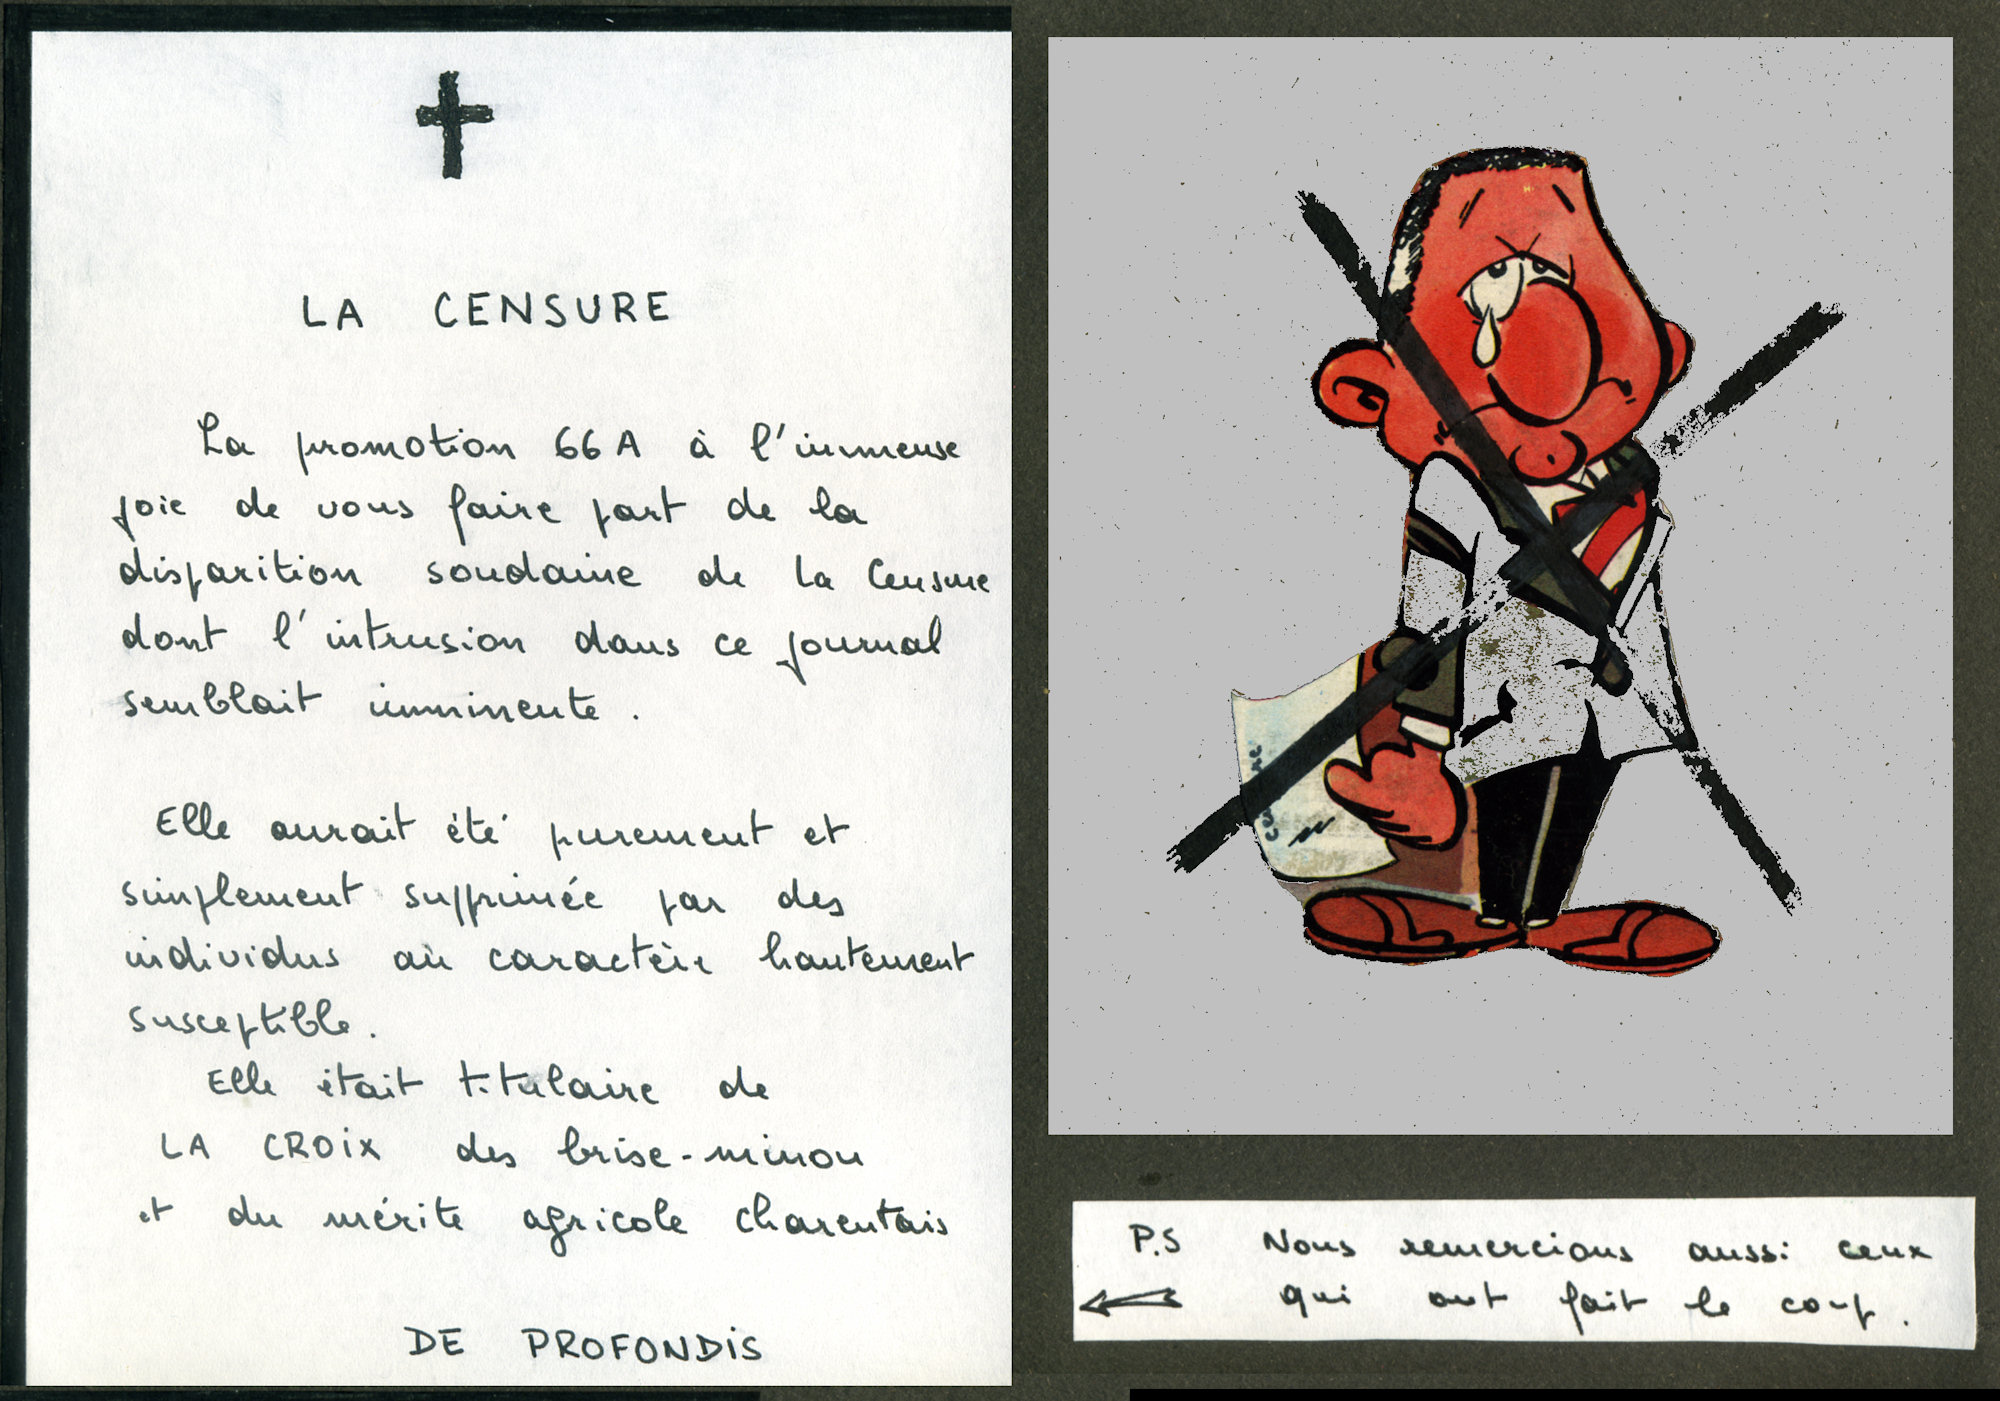 LA CENSURE
La promotion 66 A à l'immense
joie de vous faire part de la
disparition soudaine de la Censure
dont l'intrusion dans ce journal
semblait imminente.
Elle aurait été purement et
simplement supprimée par des
individus au caractère hautement
susceptible.
Elle était titulaire de
LA CROIX des brise-minou
et du mérite agricole charentais
DE PROFONDIS
P.S Nous remercions aussi ceux
qui ont fait le coup.